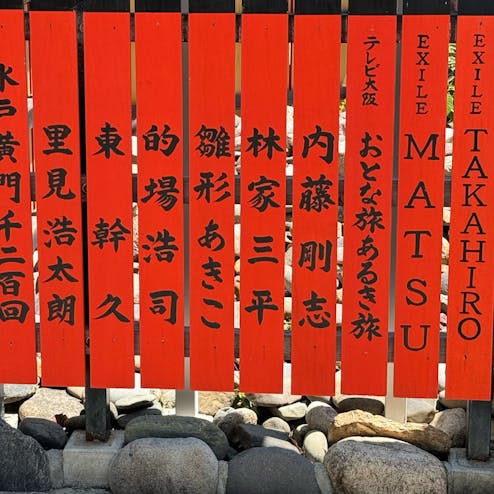 EXILE TAKAHIRO
EXILE MATSU
テレビ大阪 おとな旅あるき旅
内藤剛志
林家三平
雛形あきこ
的場浩司
東幹久
里見浩太朗
水戸黄門千二百回